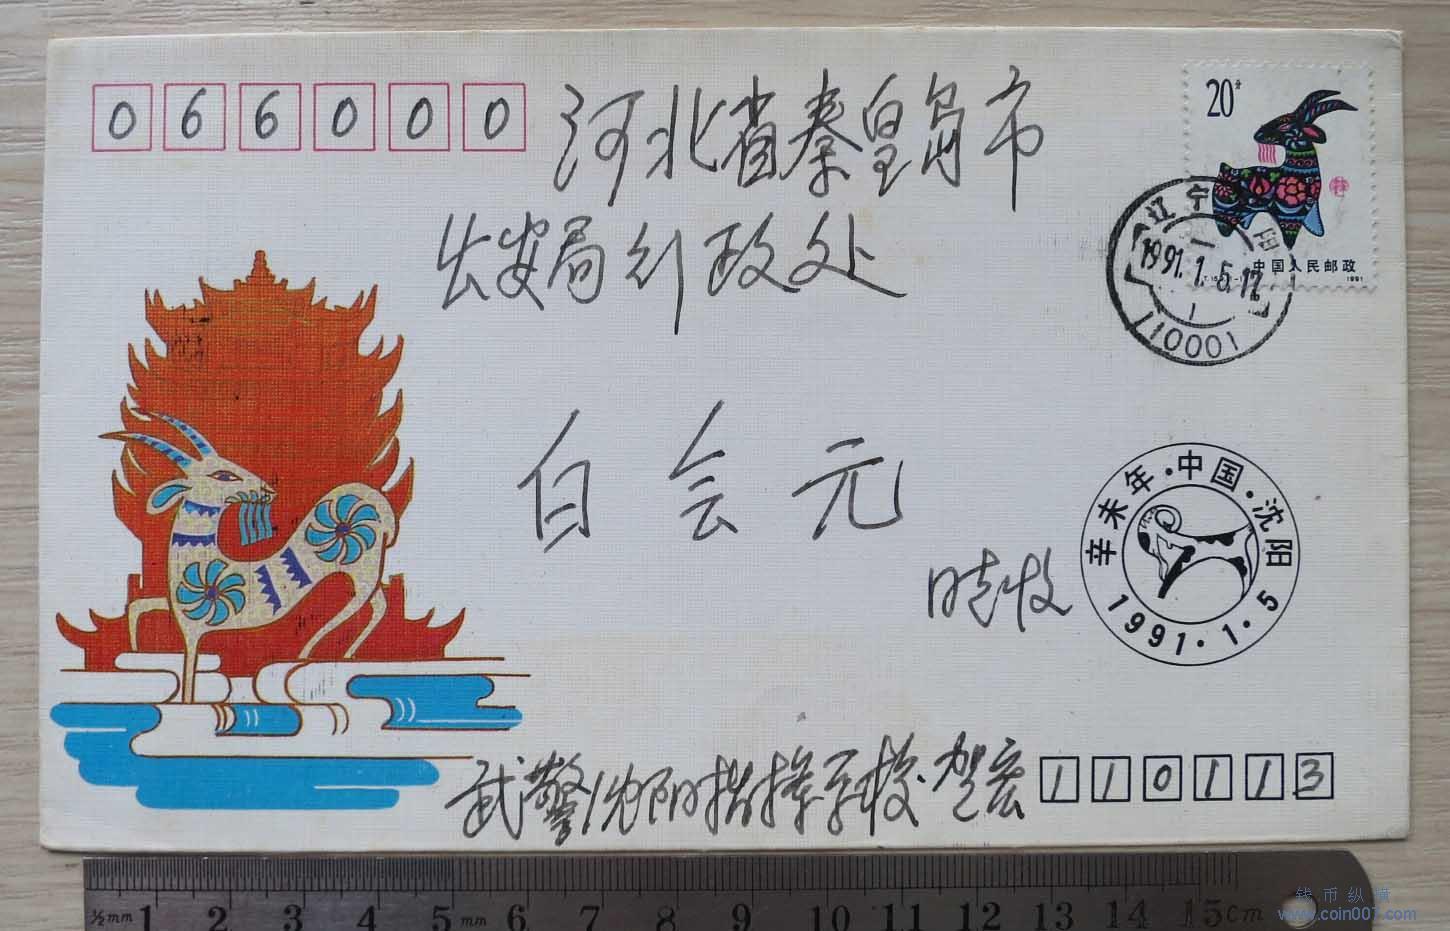 066000
河北省秦皇岛市
公安局行政处
白会元
收
武警沈阳指挥学校 贺宏
110113
20分
中国人民邮政
1991
辽宁
1991.1.5.12
1
110001
辛未年·中国·沈阳
1991·1·5
½mm 1 2 3 4 5 mm 6 7 8 9 10 11 12 13 14 15cm
钱币纵横
www.coin007.com